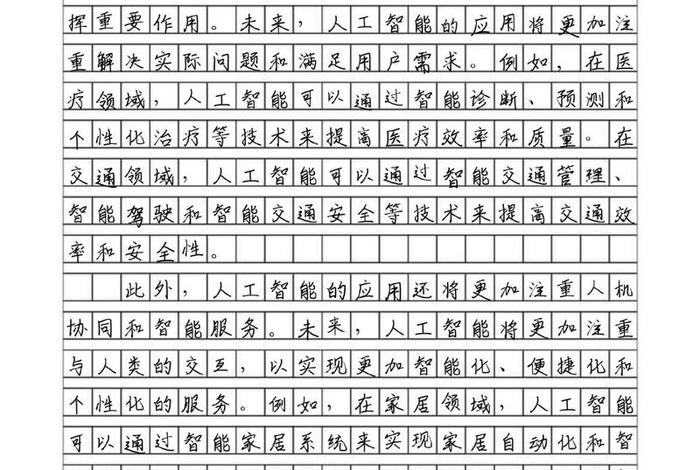 挥重要作用。未来,人工智能的应用将更加注
重解决实际问题和满足用户需求。例如,在医
疗领域,人工智能可以通过智能诊断、预测和
个性化治疗等技术来提高医疗效率和质量。在
交通领域,人工智能可以通过智能交通管理、
智能驾驶和智能交通安全等技术来提高交通效
率和安全性。
此外,人工智能的应用还将更加注重人机
协同和智能服务。未来,人工智能将更加注重
与人类的交互,以实现更加智能化、便捷化和
个性化的服务。例如,在家居领域,人工智能
可以通过智能家居系统来实现家居自动化和智